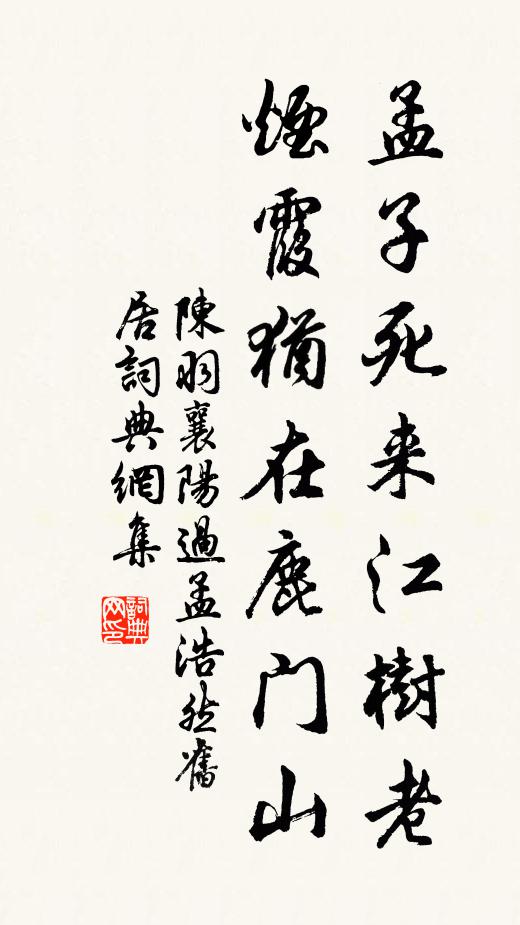 孟子死来江樹老
煙霞猶在鹿門山
陳羽襄陽過孟浩然舊
居詞典網集
詞典
网印